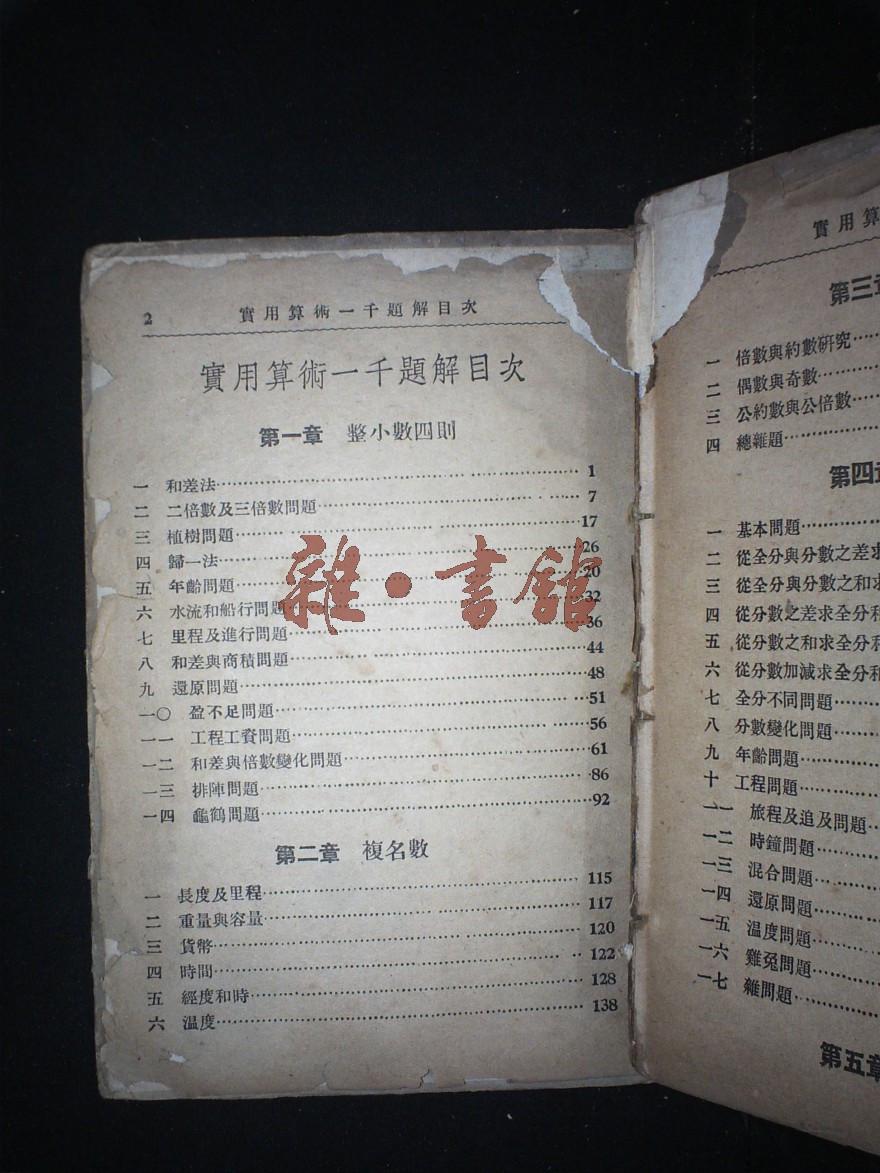 2 實用算術一千題解目次
實用算術一千題解目次
第一章 整小數四則
一 和差法 1
二 二倍數及三倍數問題 7
三 植樹問題 17
四 歸一法 26
五 年齡問題 20
六 水流和船行問題 32
七 里程及進行問題 36
八 和差與商積問題 44
九 還原問題 48
一〇 盈不足問題 51
一一 工程工資問題 56
一二 和差與倍數變化問題 61
一三 排陣問題 86
一四 龜鶴問題 92
第二章 複名數
一 長度及里程 115
二 重量與容量 117
三 貨幣 120
四 時間 122
五 經度和時 128
六 温度 138
雜·書館
實用算
第三章
一 倍數與約數研究
二 偶數與奇數
三 公約數與公倍數
四 總雜題
第四章
一 基本問題
二 從全分與分數之差求
三 從全分與分數之和求
四 從分數之差求全分和
五 從分數之和求全分和
六 從分數加減求全分和
七 全分不同問題
八 分數變化問題
九 年齡問題
十 工程問題
一一 旅程及追及問題
一二 時鐘問題
一三 混合問題
一四 還原問題
一五 温度問題
一六 雞兔問題
一七 雜問題
第五章